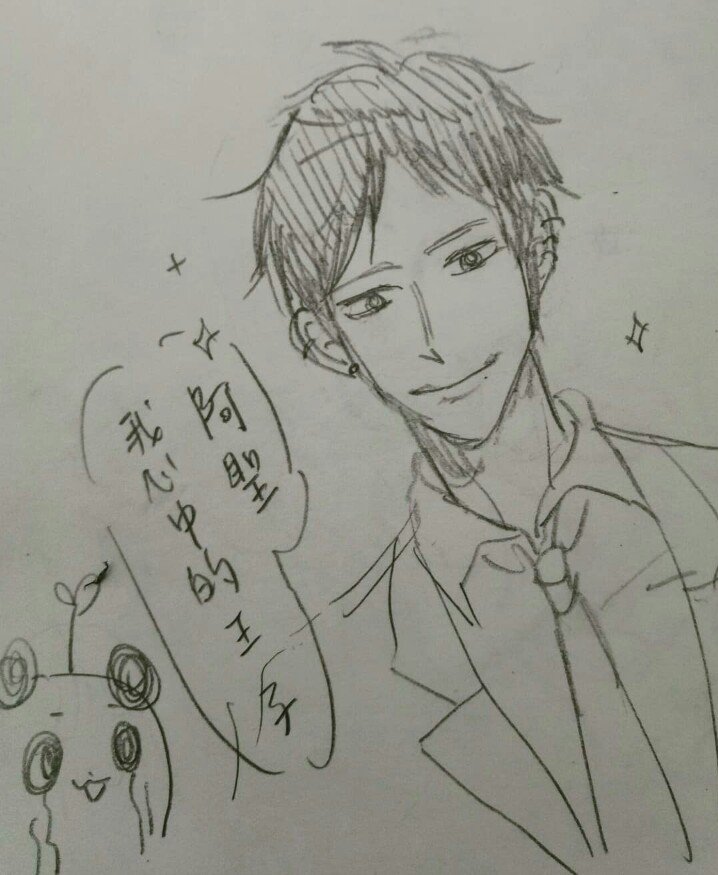 阿聖
我心中的王子